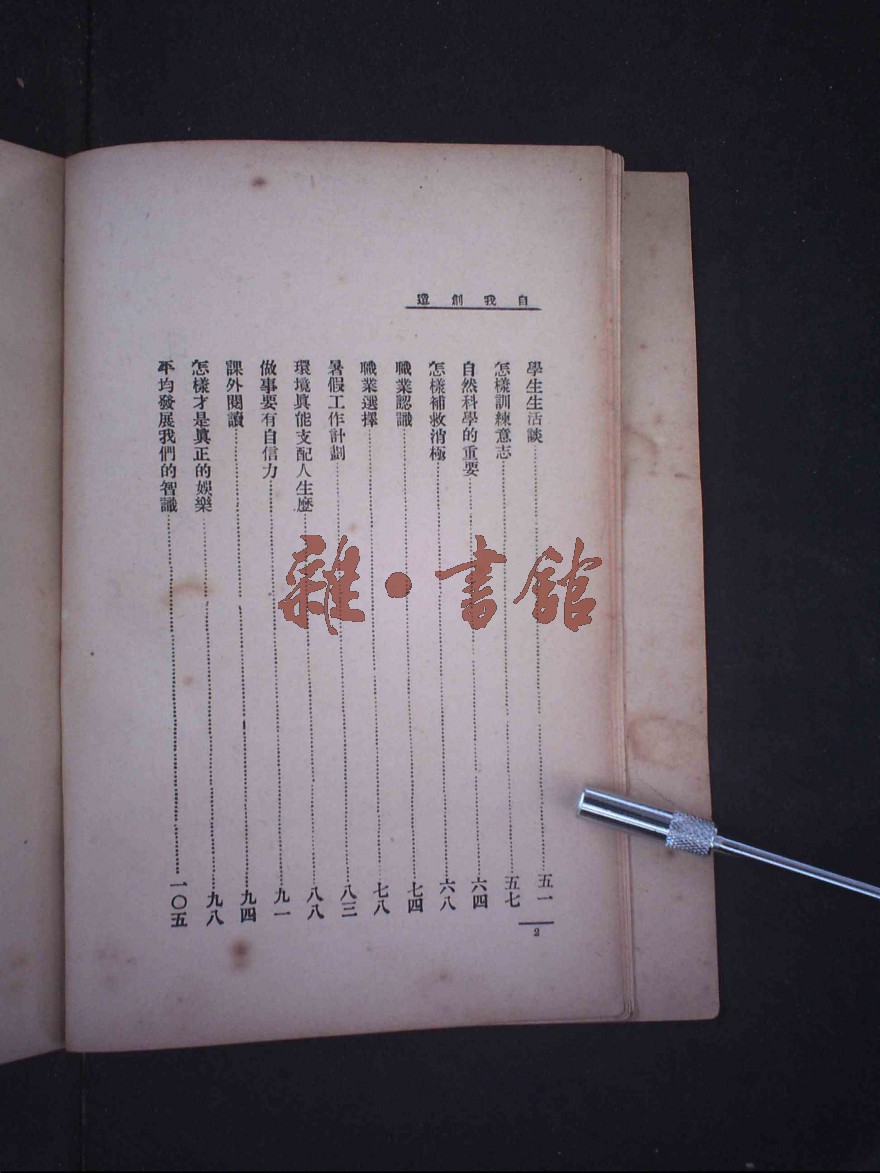 自我創造
學生生活談……五一
怎樣訓練意志……五七
自然科學的重要……六四
怎樣補救消極……六八
職業認識……七四
職業選擇……七八
暑假工作計劃……八三
環境眞能支配人生麽……八八
做事要有自信力……九一
課外閱讀……九四
怎樣才是眞正的娛樂……九八
平均發展我們的智識……一〇五
2
雜·書館